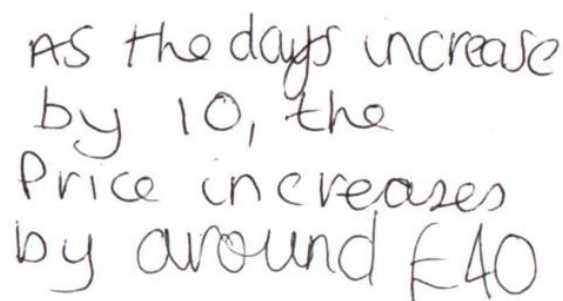 As the days increase
by 10, the
Price increases
by around £40